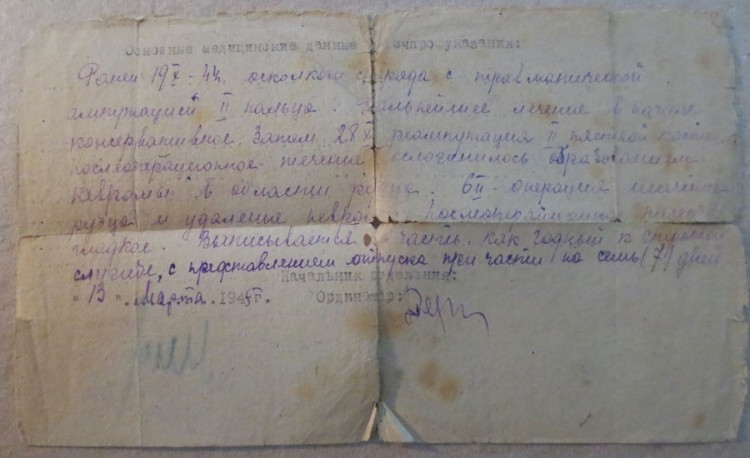 Основные медицинские данные лечпроуказания:
Ранен 19 X-44. осколком снаряда с травматической
ампутацией II пальца. Дальнейшее лечение в начале
консервативное. Затем 28 X реампутация II пястной кости
послеоперационное течение осложнилось образованием
невромы в области рубца. 6 II - операция иссечение
рубца и удаление невромы
гладкое. Выписывается в часть, как годный к строевой
службе, с представлением отпуска при части на семь (7) дней
Начальник отделения:
"13" Марта 1945 г. Ординатор: